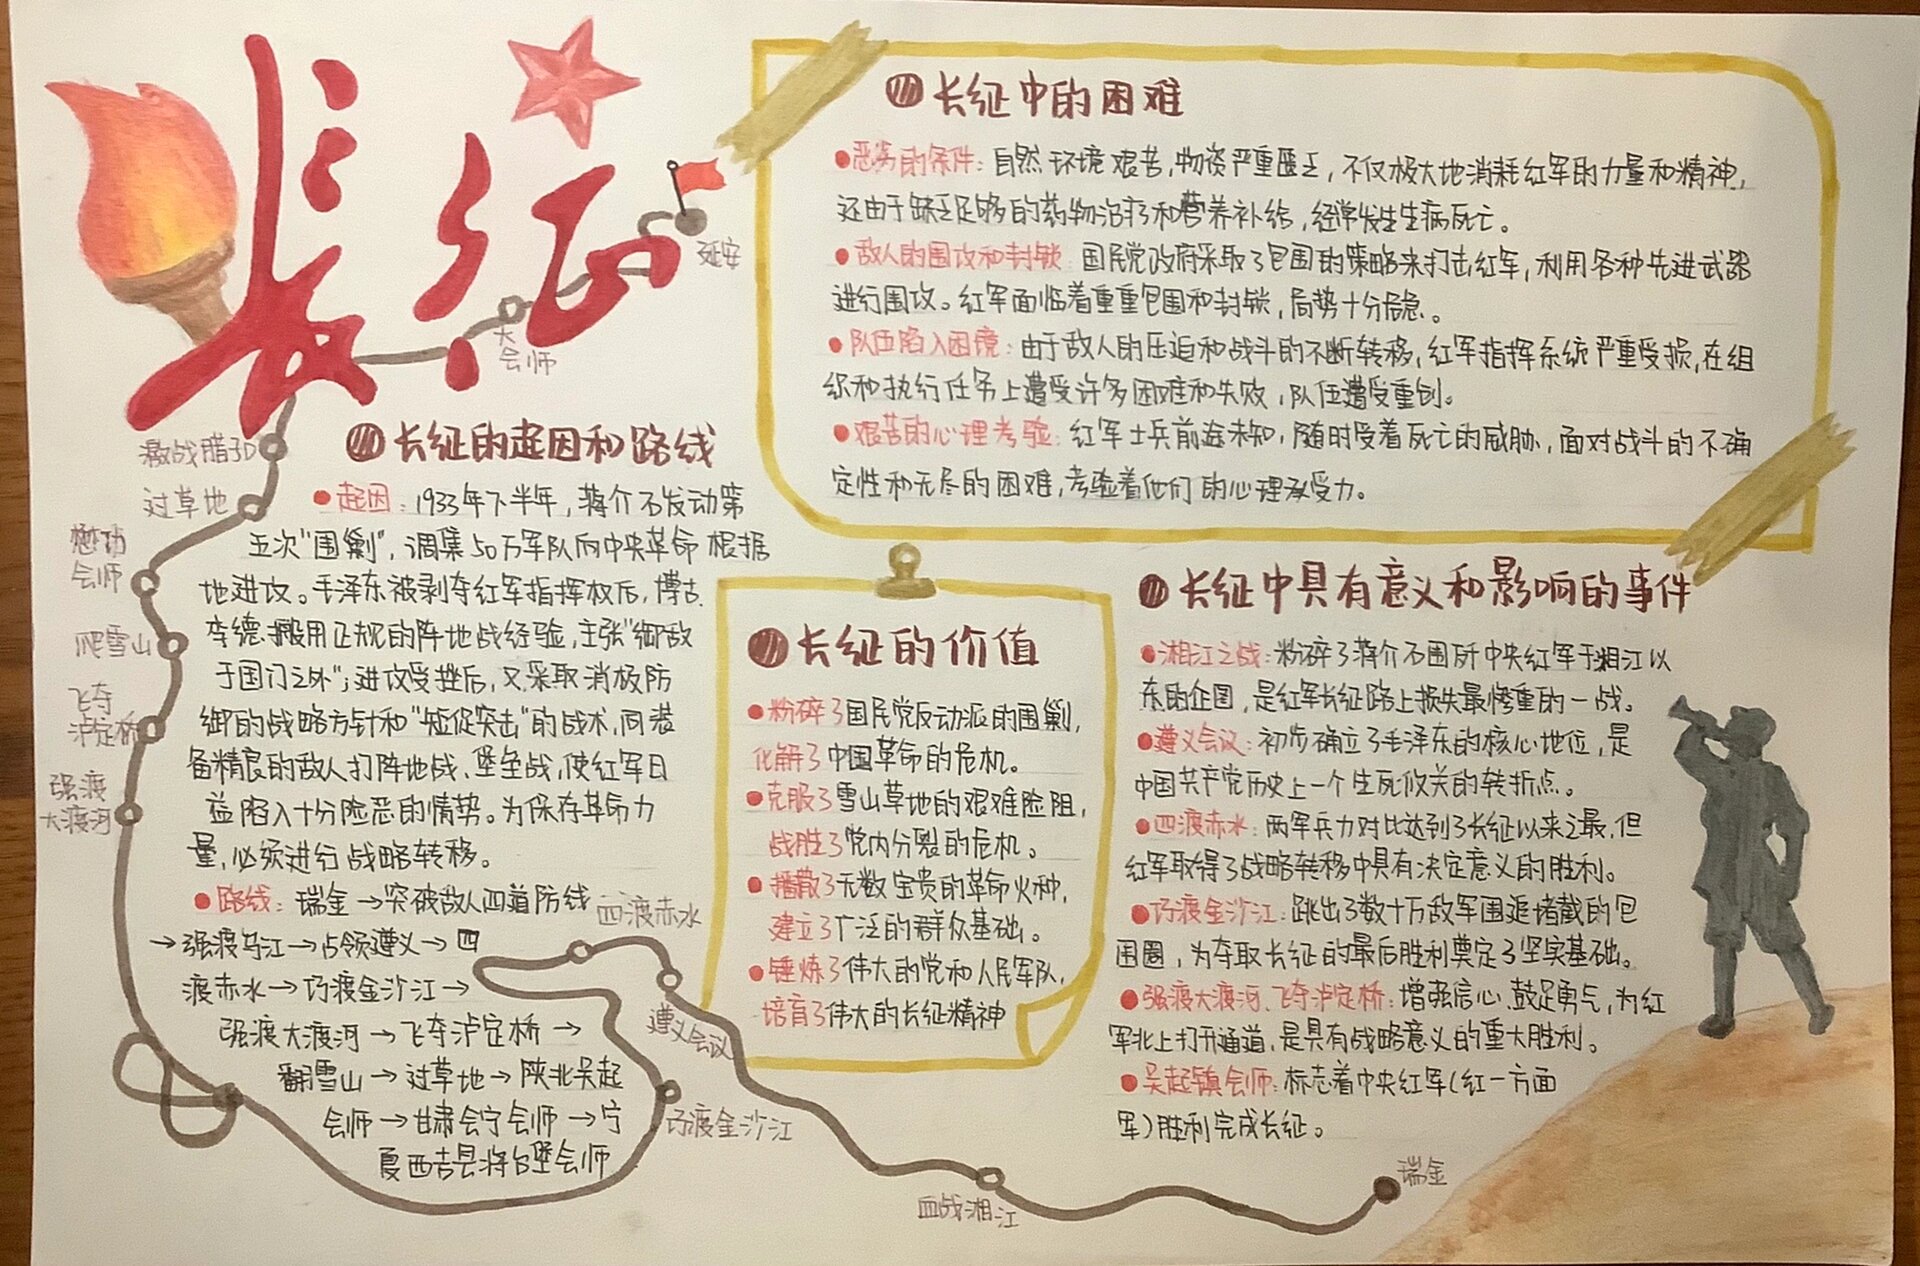 长征
延安
大会师
激战腊子口
过草地
懋功
会师
爬雪山
飞夺
泸定桥
强渡
大渡河
长征的起因和路线
起因：1933年下半年，蒋介石发动第
五次“围剿”，调集50万军队向中央革命根据
地进攻。毛泽东被剥夺红军指挥权后，博古.
李德搬用正规的阵地战经验，主张“御敌
于国门之外”；进攻受挫后，又采取消极防
御的战略方针和“短促突击”的战术，同装
备精良的敌人打阵地战、堡垒战，使红军日
益陷入十分险恶的情势。为保存革命力
量，必须进行战略转移。
路线：瑞金→突破敌人四道防线
→强渡乌江→占领遵义→四
渡赤水→巧渡金沙江→
强渡大渡河→飞夺泸定桥→
翻雪山→过草地→陕北吴起
会师→甘肃会宁会师→宁
夏西吉县将台堡会师
四渡赤水
遵义会议
巧渡金沙江
血战湘江
瑞金
长征中的困难
恶劣的条件：自然环境艰苦，物资严重匮乏，不仅极大地消耗红军的力量和精神，
还由于缺乏足够的药物治疗和营养补给，经常发生生病死亡。
敌人的围攻和封锁：国民党政府采取了包围的策略来打击红军，利用各种先进武器
进行围攻。红军面临着重重包围和封锁，局势十分危急。
队伍陷入困境：由于敌人的压迫和战斗的不断转移，红军指挥系统严重受损，在组
织和执行任务上遭受许多困难和失败，队伍遭受重创。
艰苦的心理考验：红军士兵前途未知，随时受着死亡的威胁，面对战斗的不确
定性和无尽的困难，考验着他们的心理承受力。
长征的价值
粉碎了国民党反动派的围剿，
化解了中国革命的危机。
克服了雪山草地的艰难险阻，
战胜了党内分裂的危机。
播散了无数宝贵的革命火种，
建立了广泛的群众基础。
锤炼了伟大的党和人民军队，
培育了伟大的长征精神
长征中具有意义和影响的事件
湘江之战：粉碎了蒋介石围歼中央红军于湘江以
东的企图，是红军长征路上损失最惨重的一战。
遵义会议：初步确立了毛泽东的核心地位，是
中国共产党历史上一个生死攸关的转折点。
四渡赤水：两军兵力对比达到了长征以来之最，但
红军取得了战略转移中具有决定意义的胜利。
巧渡金沙江：跳出了数十万敌军围追堵截的包
围圈，为夺取长征的最后胜利奠定了坚实基础。
强渡大渡河、飞夺泸定桥：增强信心、鼓足勇气，为红
军北上打开通道，是具有战略意义的重大胜利。
吴起镇会师：标志着中央红军（红一方面
军）胜利完成长征。